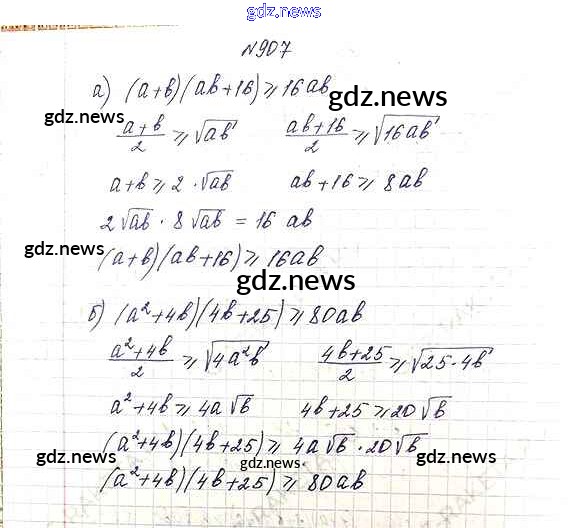 gdz.news
N907
а) (a+b)(ab+16)⩾16ab
gdz.news gdz.news
(a+b)/2 ⩾ √ab (ab+16)/2 ⩾ √16ab
a+b⩾2·√ab ab+16⩾8ab
2√ab · 8√ab = 16 ab
gdz.news gdz.news
(a+b)(ab+16)⩾16ab
gdz.news
б) (a²+4b)(4b+25)⩾80ab
(a²+4b)/2 ⩾ √4a²b (4b+25)/2 ⩾ √25·4b
a²+4b⩾4a√b 4b+25⩾20√b
(a²+4b)(4b+25)⩾4a√b·20√b
gdz.news gdz.news gdz.news
(a²+4b)(4b+25)⩾80ab